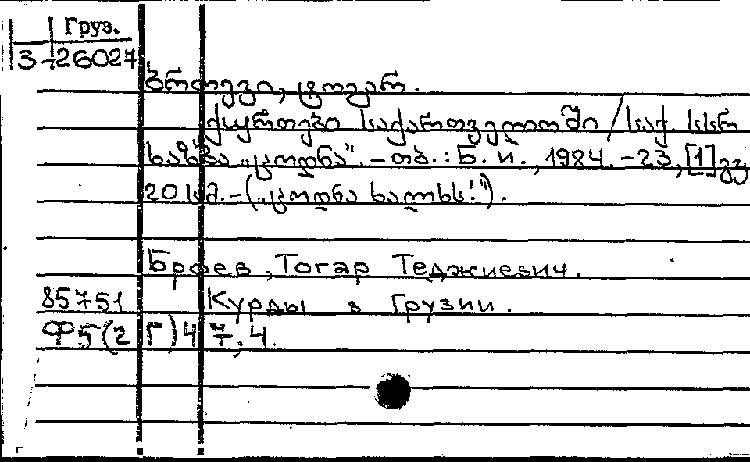 Груз.
3-26027
ბროევი, ტოგარ.
ქურთები საქართველოში / საქ. სსრ
საზ-ბა „ცოდნა". - თბ. : ნ. ი., 1984. - 23, [1] გვ
20 სმ. - („ცოდნა ხალხს!").
Броев, Тогар Теджиевич.
85751 Курды в Грузии.
Ф5(2Г)47,4.